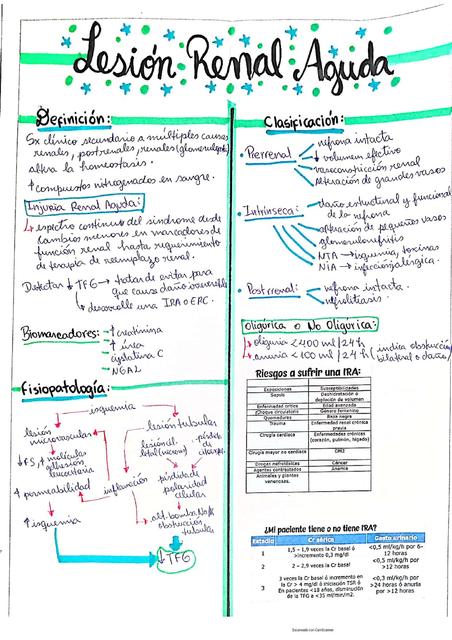 Lesión Renal Aguda
Definición:
Sx clínico secundario a múltiples causas
renales, postrenales, renales (glomerulopat)
altera la homeostasis.
↑ compuestos nitrogenados en sangre.
Injuria Renal Aguda:
↳ espectro continuo del síndrome desde
cambios menores en marcadores de
función renal hasta requerimiento
de terapia de reemplazo renal.
Detectar ↓ TFG → tratar de evitar para
que cause daño irreversible
↳ desarrolle una IRA o ERC.
Biomarcadores: → ↑ creatinina
→ ↑ úrea
→ cistatina C
→ NGAL
Fisiopatología:
isquemia
lesión
microvascular
lesión tubular
↓FS, ↑ moléculas
adhesión
leucocitaria
lesión cél.
pérdida
de
↑ permeabilidad
inflamación
pérdida de
polaridad
celular
↑ isquemia
alt. bomba Na/K
obstrucción
tubular
↓ TFG
Clasificación:
• Prerrenal
nefrona intacta
↓ volumen efectivo
vasoconstricción renal
alteración de grandes vasos
• Intrínseca:
daño estructural y funcional
de la nefrona
alteración de pequeños vasos
glomerulonefritis
NTA → isquemia, toxinas
NIA → infección/alérgica.
• Postrrenal:
nefrona intacta.
nefrolitiasis.
Oligúrica o No Oligúrica:
↳ oliguria <400 ml/24 h
↳ anuria <100 ml/24 h (indica obstrucción
bilateral o daño)
Riesgos a sufrir una IRA:
Exposiciones Susceptibilidades
Sepsis Deshidratación o depleción de volumen
Enfermedad crítica Edad avanzada
Choque circulatorio Género femenino
Quemaduras Raza negra
Trauma Enfermedad renal crónica previa
Cirugía cardiaca Enfermedades crónicas (corazón, pulmón, hígado)
Cirugía mayor no cardiaca DM2
Drogas nefrotóxicas Cáncer
Agentes contrastados Anemia
Animales y plantas venenosas.
¿Mi paciente tiene o no tiene IRA?
Estadio Cr sérica Gasto urinario
1 1,5 – 1,9 veces la Cr basal ó >incremento 0,3 mg/dl <0,5 ml/kg/h por 6-12 horas
2 2 – 2,9 veces la Cr basal <0,5 ml/kg/h por >12 horas
3 3 veces la Cr basal ó incremento en la Cr > 4 mg/dl ó iniciación TSR ó En pacientes <18 años, disminución de la TFG a <35 ml/min/m2. <0,3 ml/kg/h por >24 horas ó anuria por >12 hrs
Escaneado con CamScanner